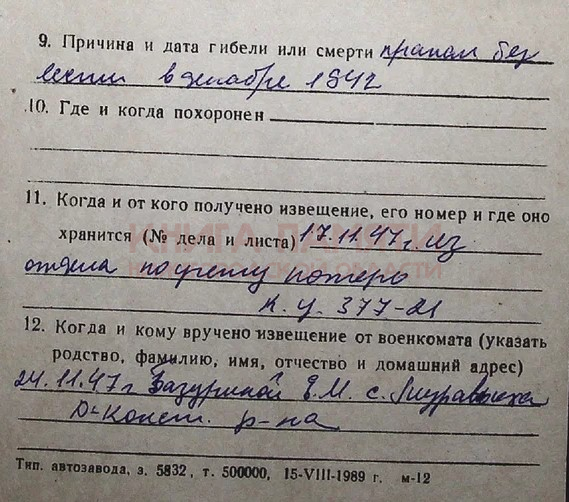 9. Причина и дата гибели или смерти пропал без
вести в декабре 1942
10. Где и когда похоронен
11. Когда и от кого получено извещение, его номер и где оно
хранится (№ дела и листа) 17.11.47 г. из
отдела по учету потерь
К. У. 377-21
12. Когда и кому вручено извещение от военкомата (указать
родство, фамилию, имя, отчество и домашний адрес)
24.11.47 г Е.М. с.
Д-Конст. р-на
Тип. автозавода, з. 5832, т. 500000, 15-VIII-1989 г. м-12